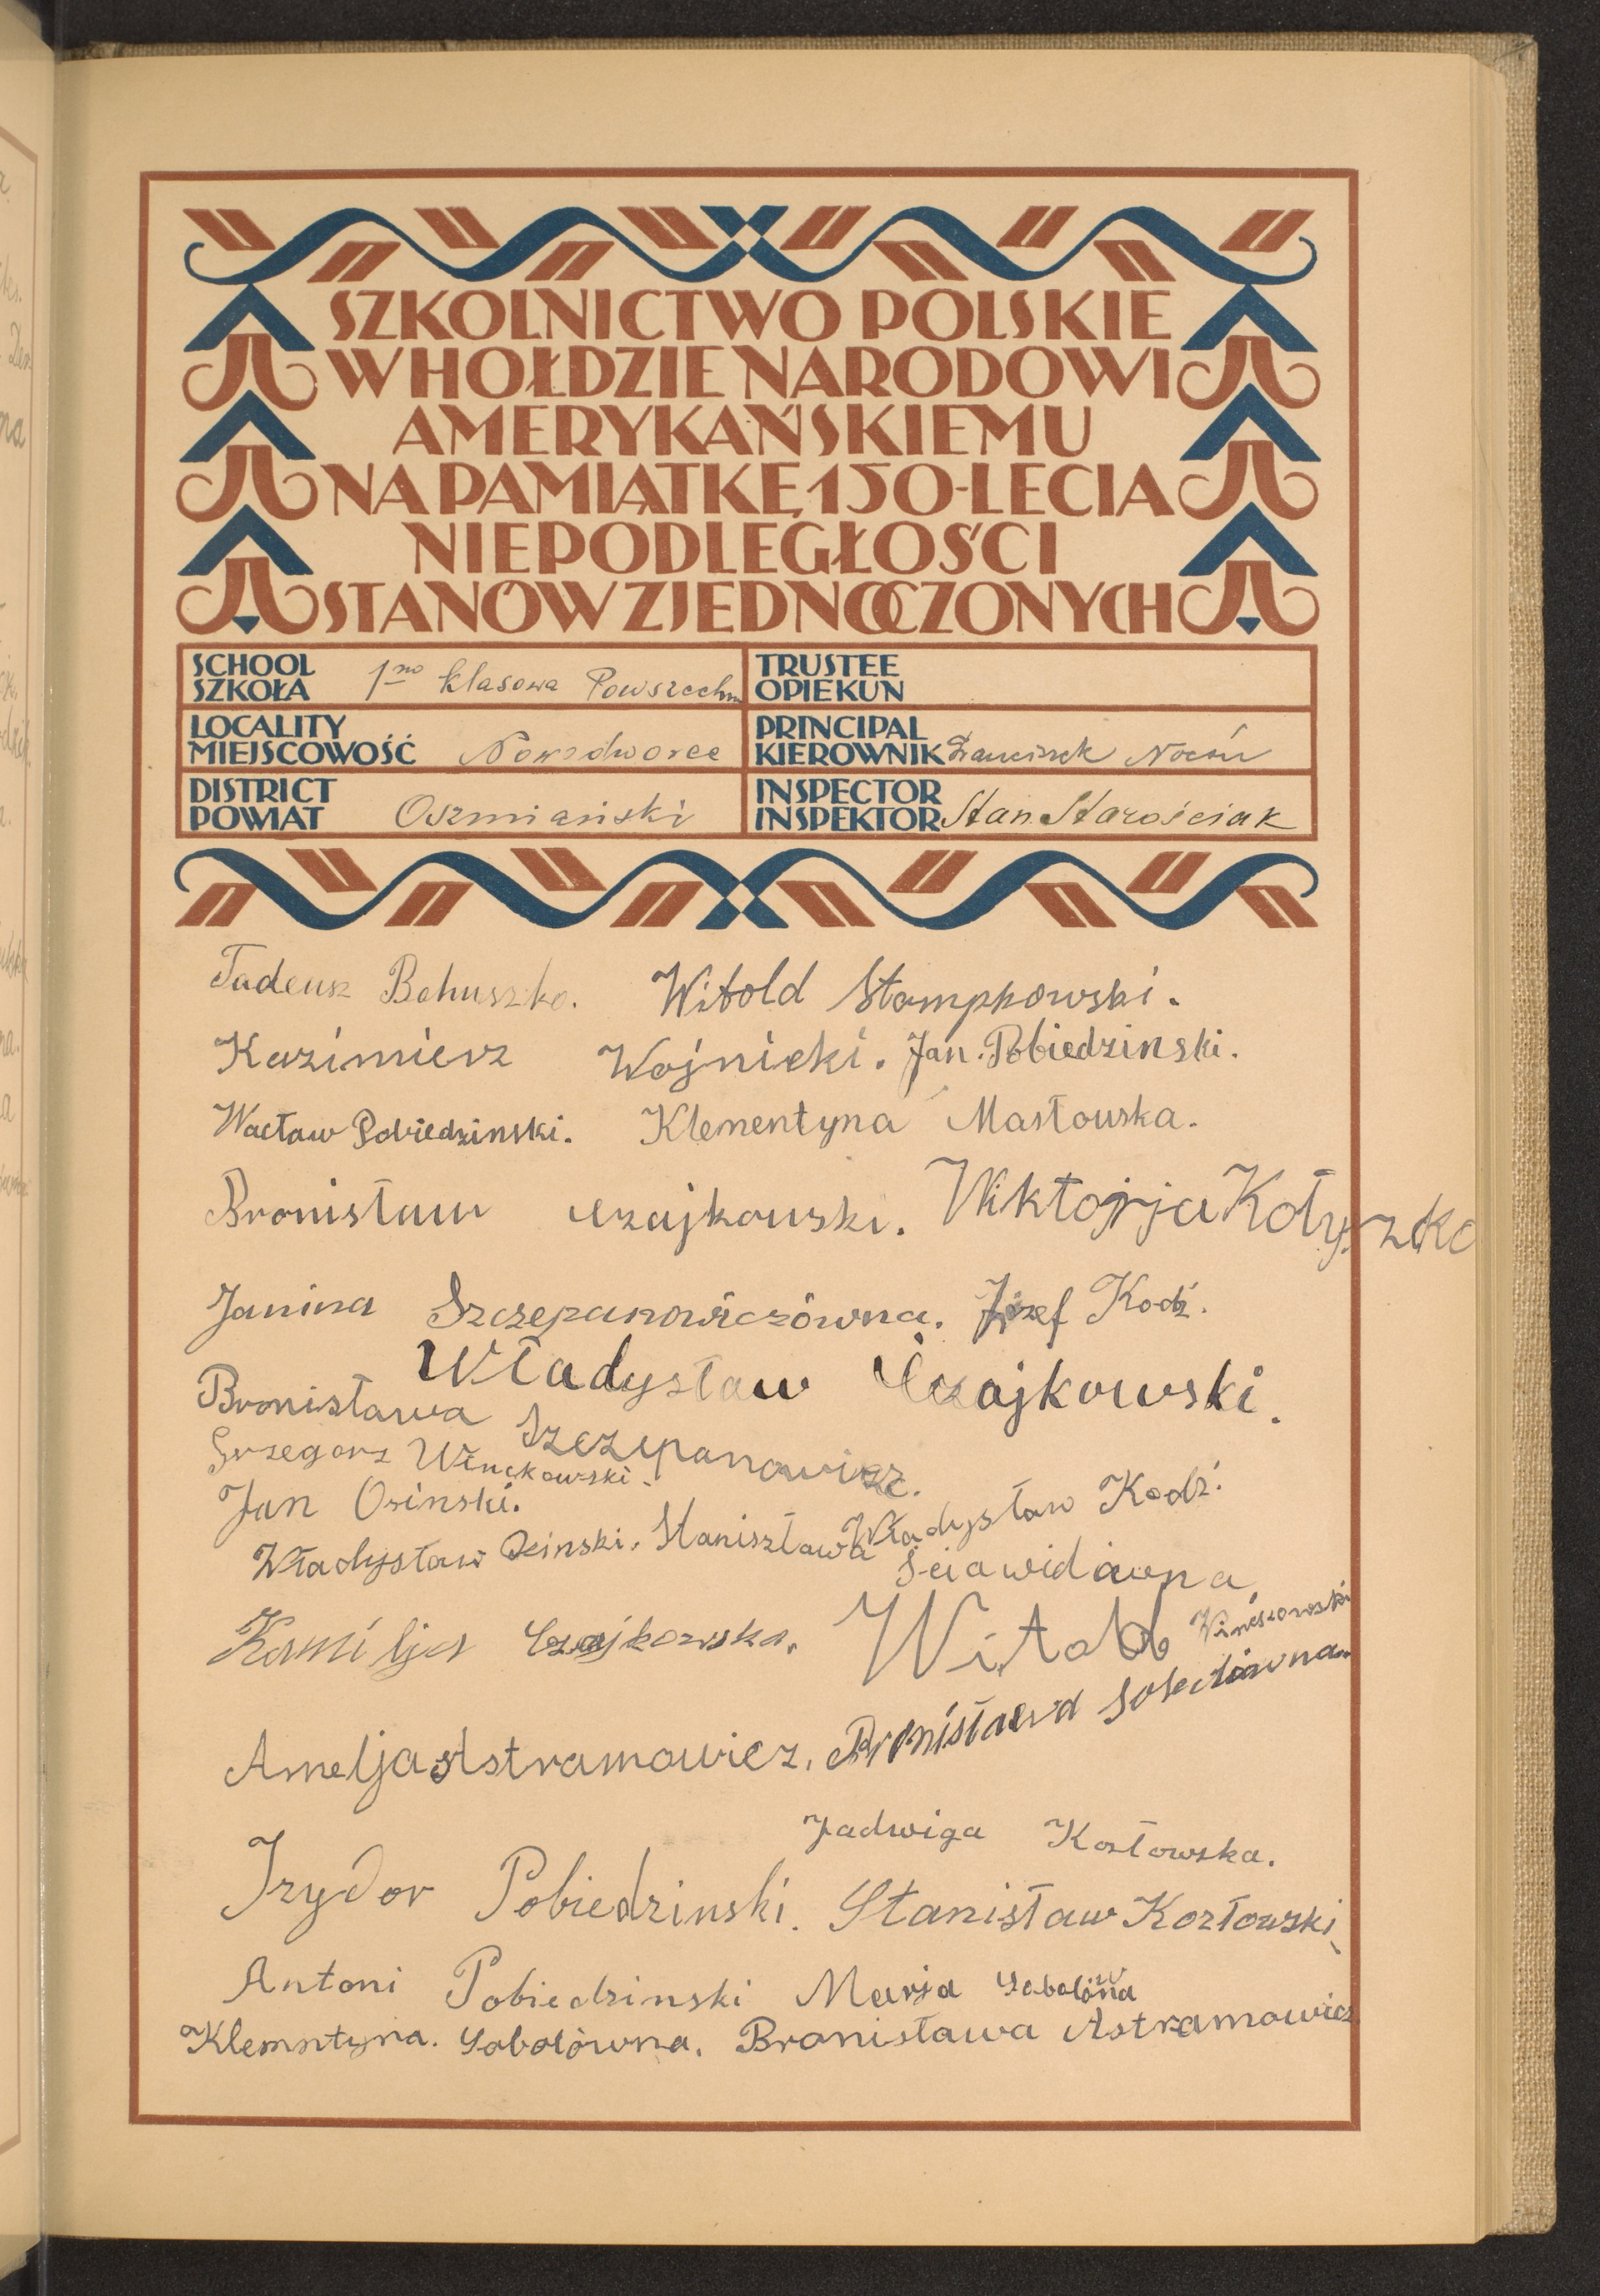 SZKOLNICTWO POLSKIE
W HOŁDZIE NARODOWI
AMERYKAŃSKIEMU
NA PAMIĄTKĘ 150-LECIA
NIEPODLEGŁOŚCI
STANÓW ZJEDNOCZONYCH
SCHOOL
SZKOŁA 1no klasowa Powszechn
TRUSTEE
OPIEKUN
LOCALITY
MIEJSCOWOŚĆ Nowodworce
PRINCIPAL
KIEROWNIK Franciszek Nocoń
DISTRICT
POWIAT Oszmiański
INSPECTOR
INSPEKTOR Stan. Starościak
Tadeusz Bohuszko. Witold Stampkowski.
Kazimierz Wojnicki. Jan. Pobiedzinski.
Wacław Pobiedzinski. Klementyna Masłouska.
Bronisław Czajkouski. Wiktorja Kołyszko
Janina Szczepanowiczówna. Józef Kodź.
Władysław Czajkowski.
Bronisława Szczepanowicz.
Grzegorz Winckowski.
Jan Osinski. Władysław Kodź.
Władysław Osinski. Staniszława Sciawidówna.
Kamilja Czajkowska. Witold Wincszowski
Amelja Astramowicz. Bronisława
Jadwiga Kozłowska.
Izydor Pobiedzinski. Stanisław Kozłowski
Antoni Pobiedzinski Marja Sobolówna
Klemntyna. Sobolówna. Bronisława Astramowicz